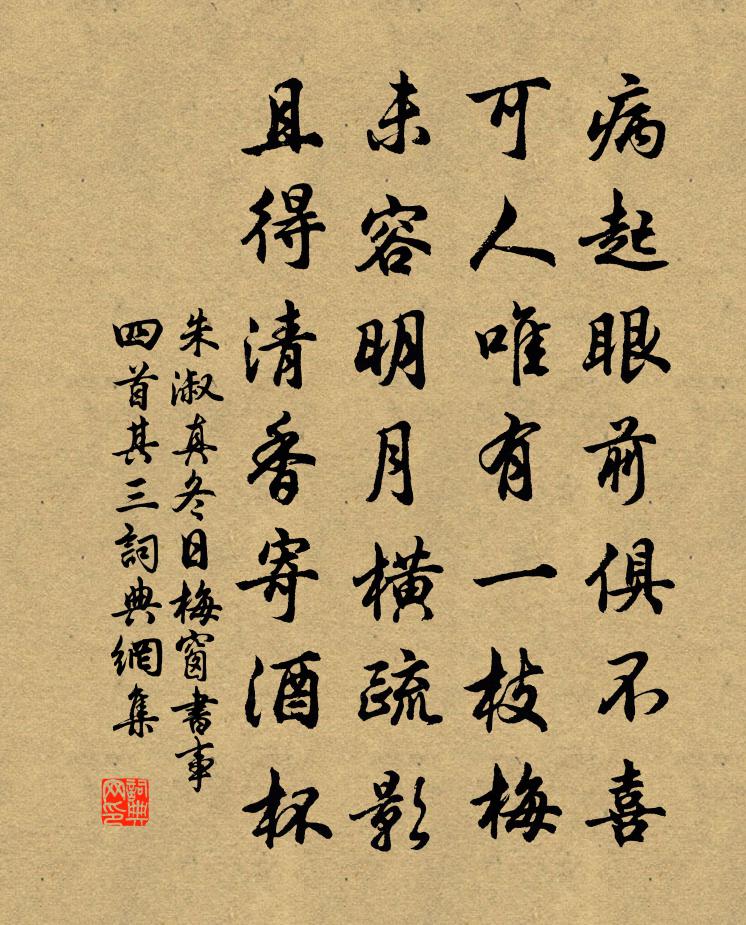 病起眼前俱不喜
可人唯有一枝梅
未容明月橫疏影
且得清香寄酒杯
朱淑真冬日梅窗書事
四首其三詞典網集
詞典
网印